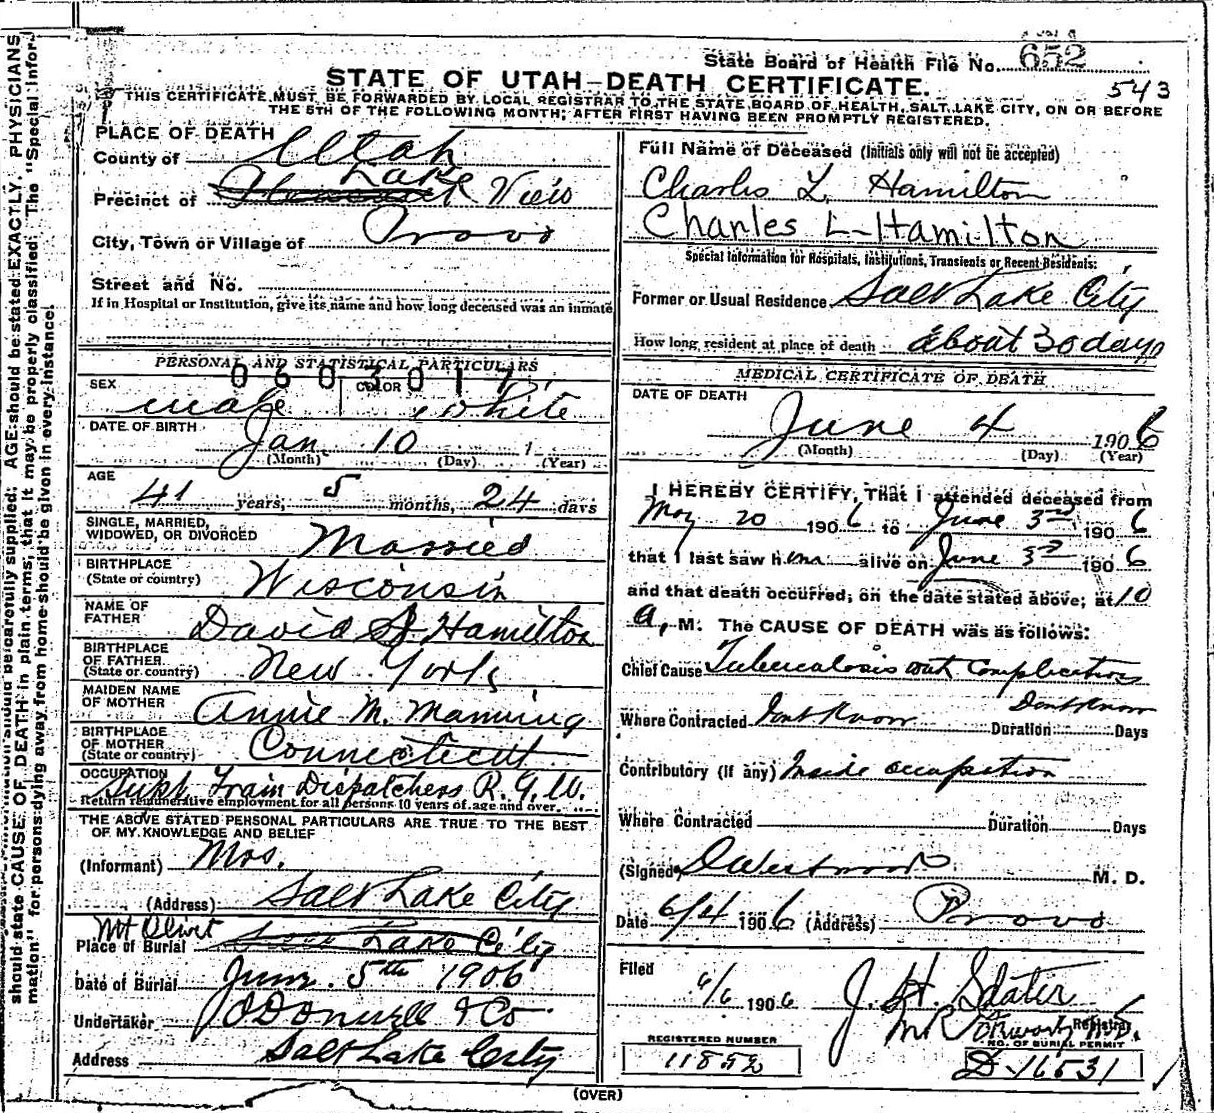 State Board of Health File No. 652
543
STATE OF UTAH—DEATH CERTIFICATE.
THIS CERTIFICATE MUST BE FORWARDED BY LOCAL REGISTRAR TO THE STATE BOARD OF HEALTH, SALT LAKE CITY, ON OR BEFORE
THE 5TH OF THE FOLLOWING MONTH; AFTER FIRST HAVING BEEN PROMPTLY REGISTERED.
PLACE OF DEATH
County of Utah
Precinct of Lake View
City, Town or Village of Provo
Street and No.
If in Hospital or Institution, give its name and how long deceased was an inmate
PERSONAL AND STATISTICAL PARTICULARS
0602017
SEX male COLOR white
DATE OF BIRTH Jan. 10 1
(Month) (Day) (Year)
AGE
41 years, 5 months, 24 days
SINGLE, MARRIED,
WIDOWED, OR DIVORCED Married
BIRTHPLACE
(State or country) Wisconsin
NAME OF
FATHER David S. Hamilton
BIRTHPLACE
OF FATHER
(State or country) New York
MAIDEN NAME
OF MOTHER Annie M. Manning
BIRTHPLACE
OF MOTHER
(State or country) Connecticutt
OCCUPATION
Supt. Train Dispatchers R. G. W.
Return remunerative employment for all persons 10 years of age and over.
THE ABOVE STATED PERSONAL PARTICULARS ARE TRUE TO THE BEST
OF MY KNOWLEDGE AND BELIEF
(Informant) Mrs.
(Address) Salt Lake City
Mt Olivet
Place of Burial Salt Lake City
Date of Burial June 5th 1906
Undertaker O'Donnell & Co
Address Salt Lake City
Full Name of Deceased (Initials only will not be accepted)
Charles L. Hamilton
Charles L Hamilton
Special Information for Hospitals, Institutions, Transients or Recent Residents:
Former or Usual Residence Salt Lake City
How long resident at place of death about 30 days
MEDICAL CERTIFICATE OF DEATH
DATE OF DEATH
June 4 1906
(Month) (Day) (Year)
I HEREBY CERTIFY, That I attended deceased from
May 20 1906 to June 3rd 1906
that I last saw him alive on June 3rd 1906
and that death occurred, on the date stated above, at 10
a, M. The CAUSE OF DEATH was as follows:
Chief Cause Tuberculosis with Complications
Where Contracted Dont Know Duration Dont Know Days
Contributory (if any) Inside occupation
Where Contracted Duration Days
(Signed) D Westwood M. D.
Date 6/4 1906 (Address) Provo
Filed 6/6 1906 J. H. Slater
Registrar
REGISTERED NUMBER
11852
NO. OF BURIAL PERMIT
D-16531
(OVER)
should state CAUSE OF DEATH in plain terms, that it may be properly classified. The "Special Information" for persons dying away from home should be given in every instance.
information should be carefully supplied. AGE should be stated EXACTLY. PHYSICIANS